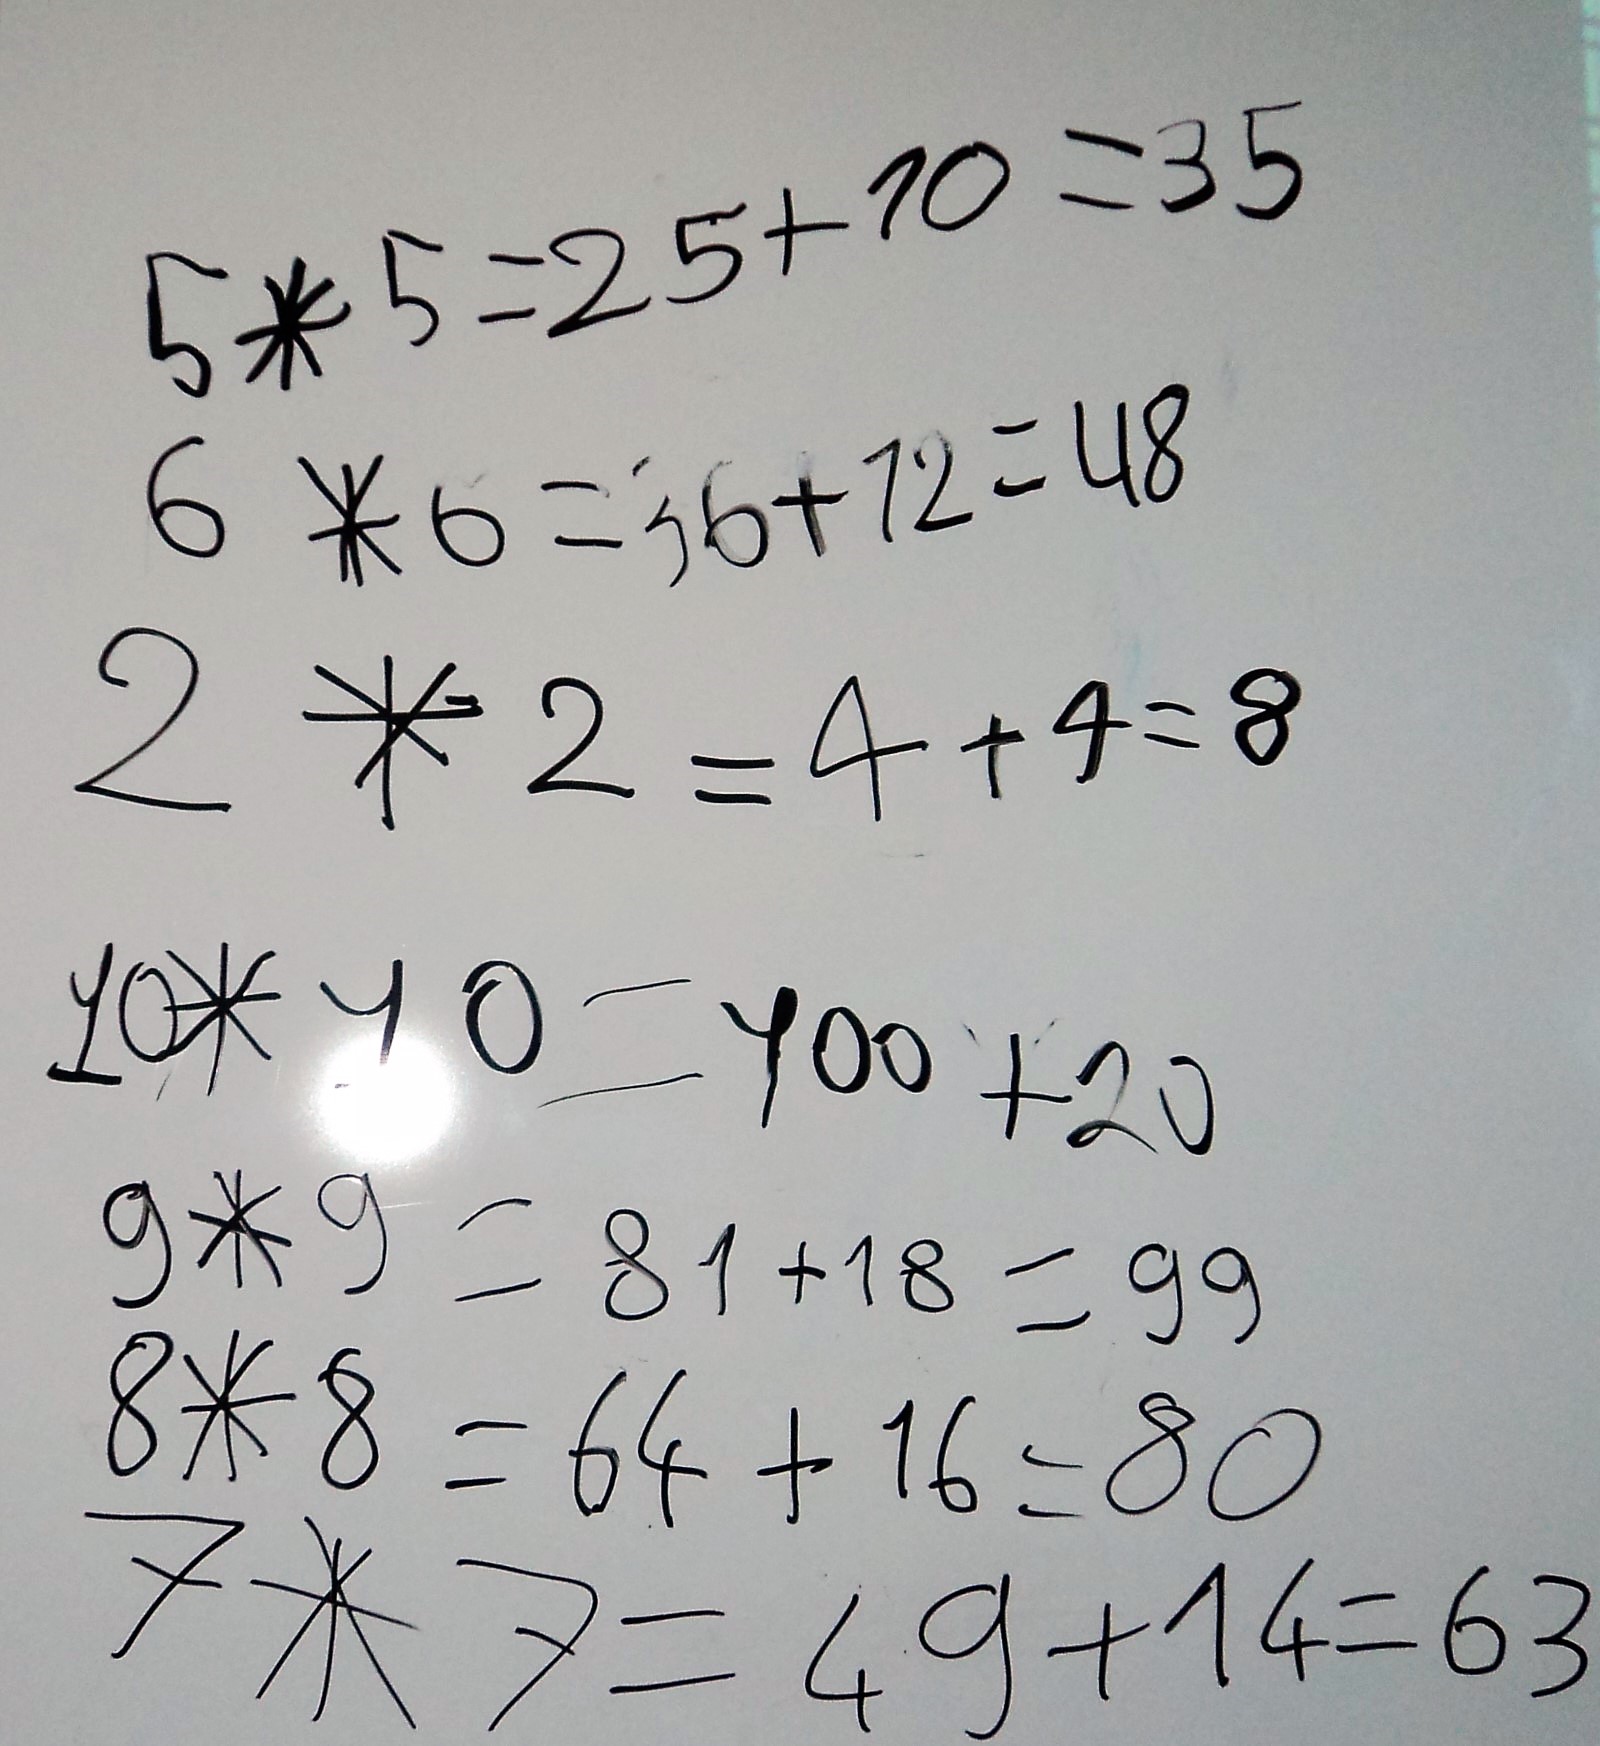 5*5=25+10=35
6*6=36+12=48
2*2=4+4=8
10*10=100+20
9*9=81+18=99
8*8=64+16=80
7*7=49+14=63